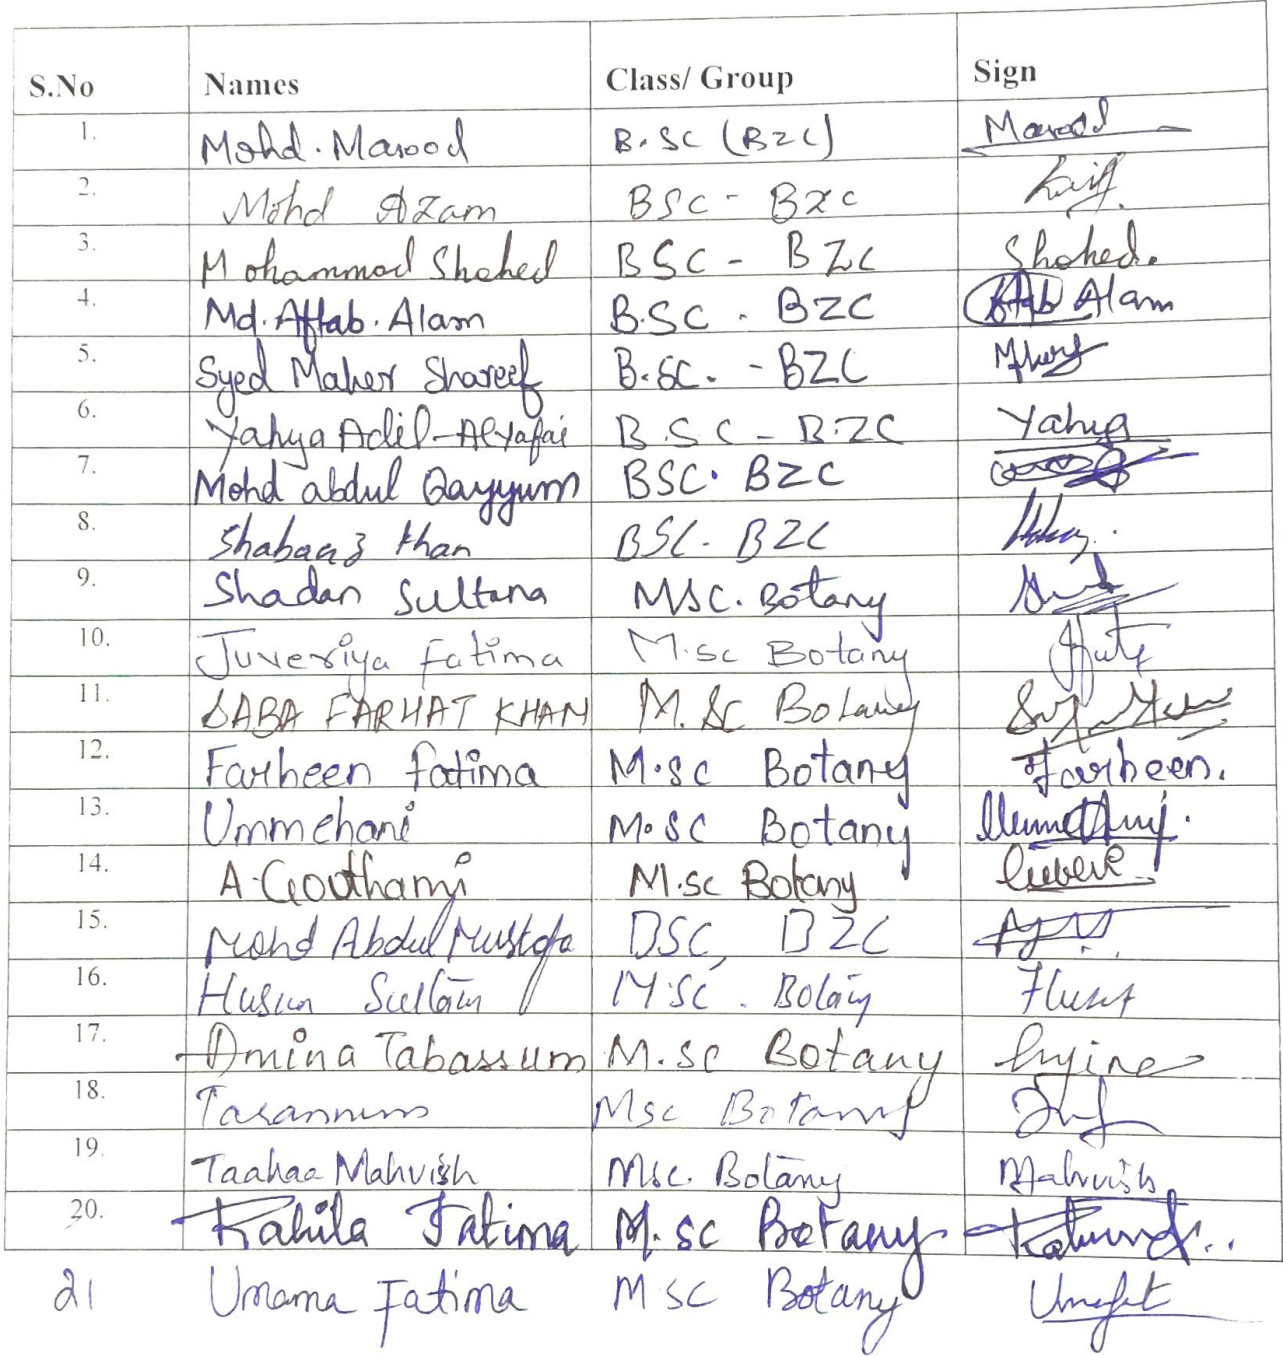 S.No Names Class/ Group Sign
1. Mohd. Masood B.SC (BZC) Masood
2. Mohd Azam BSC - BZC
3. Mohammod Shahed BSC - BZC Shahed.
4. Md. Aftab. Alam B.SC - BZC Aftab Alam
5. Syed Maher Shareef B.SC. - BZC
6. Yahya Adil-Alyafai B.SC - B.ZC Yahya
7. Mohd abdul Qayyum BSC. BZC
8. Shabaaz Khan BSC. BZC
9. Shadan Sultana MSC. Botany
10. Juveriya fatima M.sc Botany
11. SABA FARHAT KHAN M.Sc Botany
12. Farheen fatima M.sc Botany Farheen.
13. Ummehani M.sc Botany
14. A. Gouthami M.sc Botany
15. Mohd Abdul Mustafa BSC, BZC
16. Husun Sultan M.Sc. Botany
17. Amina Tabassum M.sc Botany
18. Tarannum Msc Botany
19. Taahaa Mahvish Msc. Botany Mahvish
20. Rahila Fatima M.sc Botany
21 Umama Fatima M SC Botany